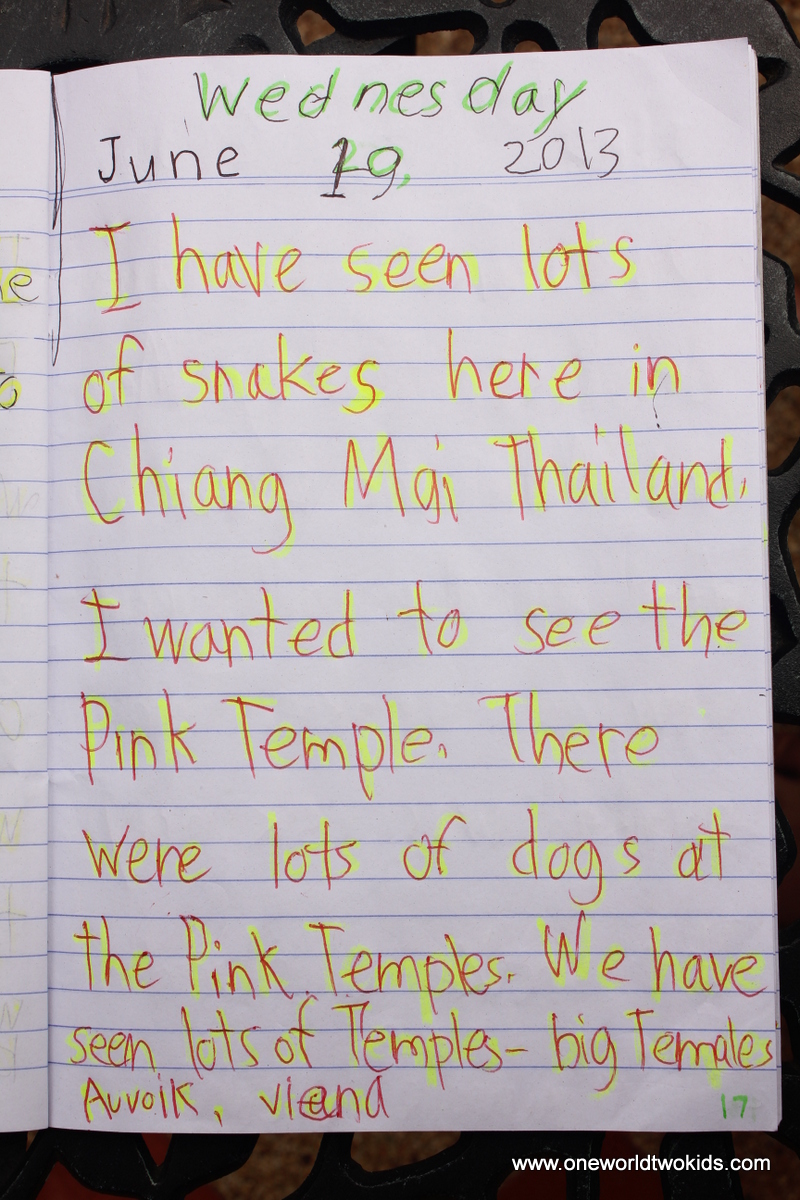 Wednesday
June 19, 2013
I have seen lots
of snakes here in
Chiang Mai Thailand.
I wanted to see the
Pink Temple. There
were lots of dogs at
the Pink Temples. We have
seen lots of Temples- big Temales
Auvoik, vieand
17
www.oneworldtwokids.com